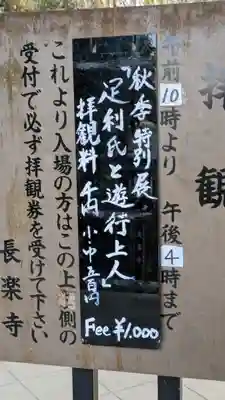 拝観
午前10時より 午後4時まで
秋季特別展
「足利氏と遊行上人」
拝観料 千円 小・中五百円
Fee ¥1,000
これより入場の方はこの上 側の
受付で必ず拝観券を受けて下さい
長楽寺